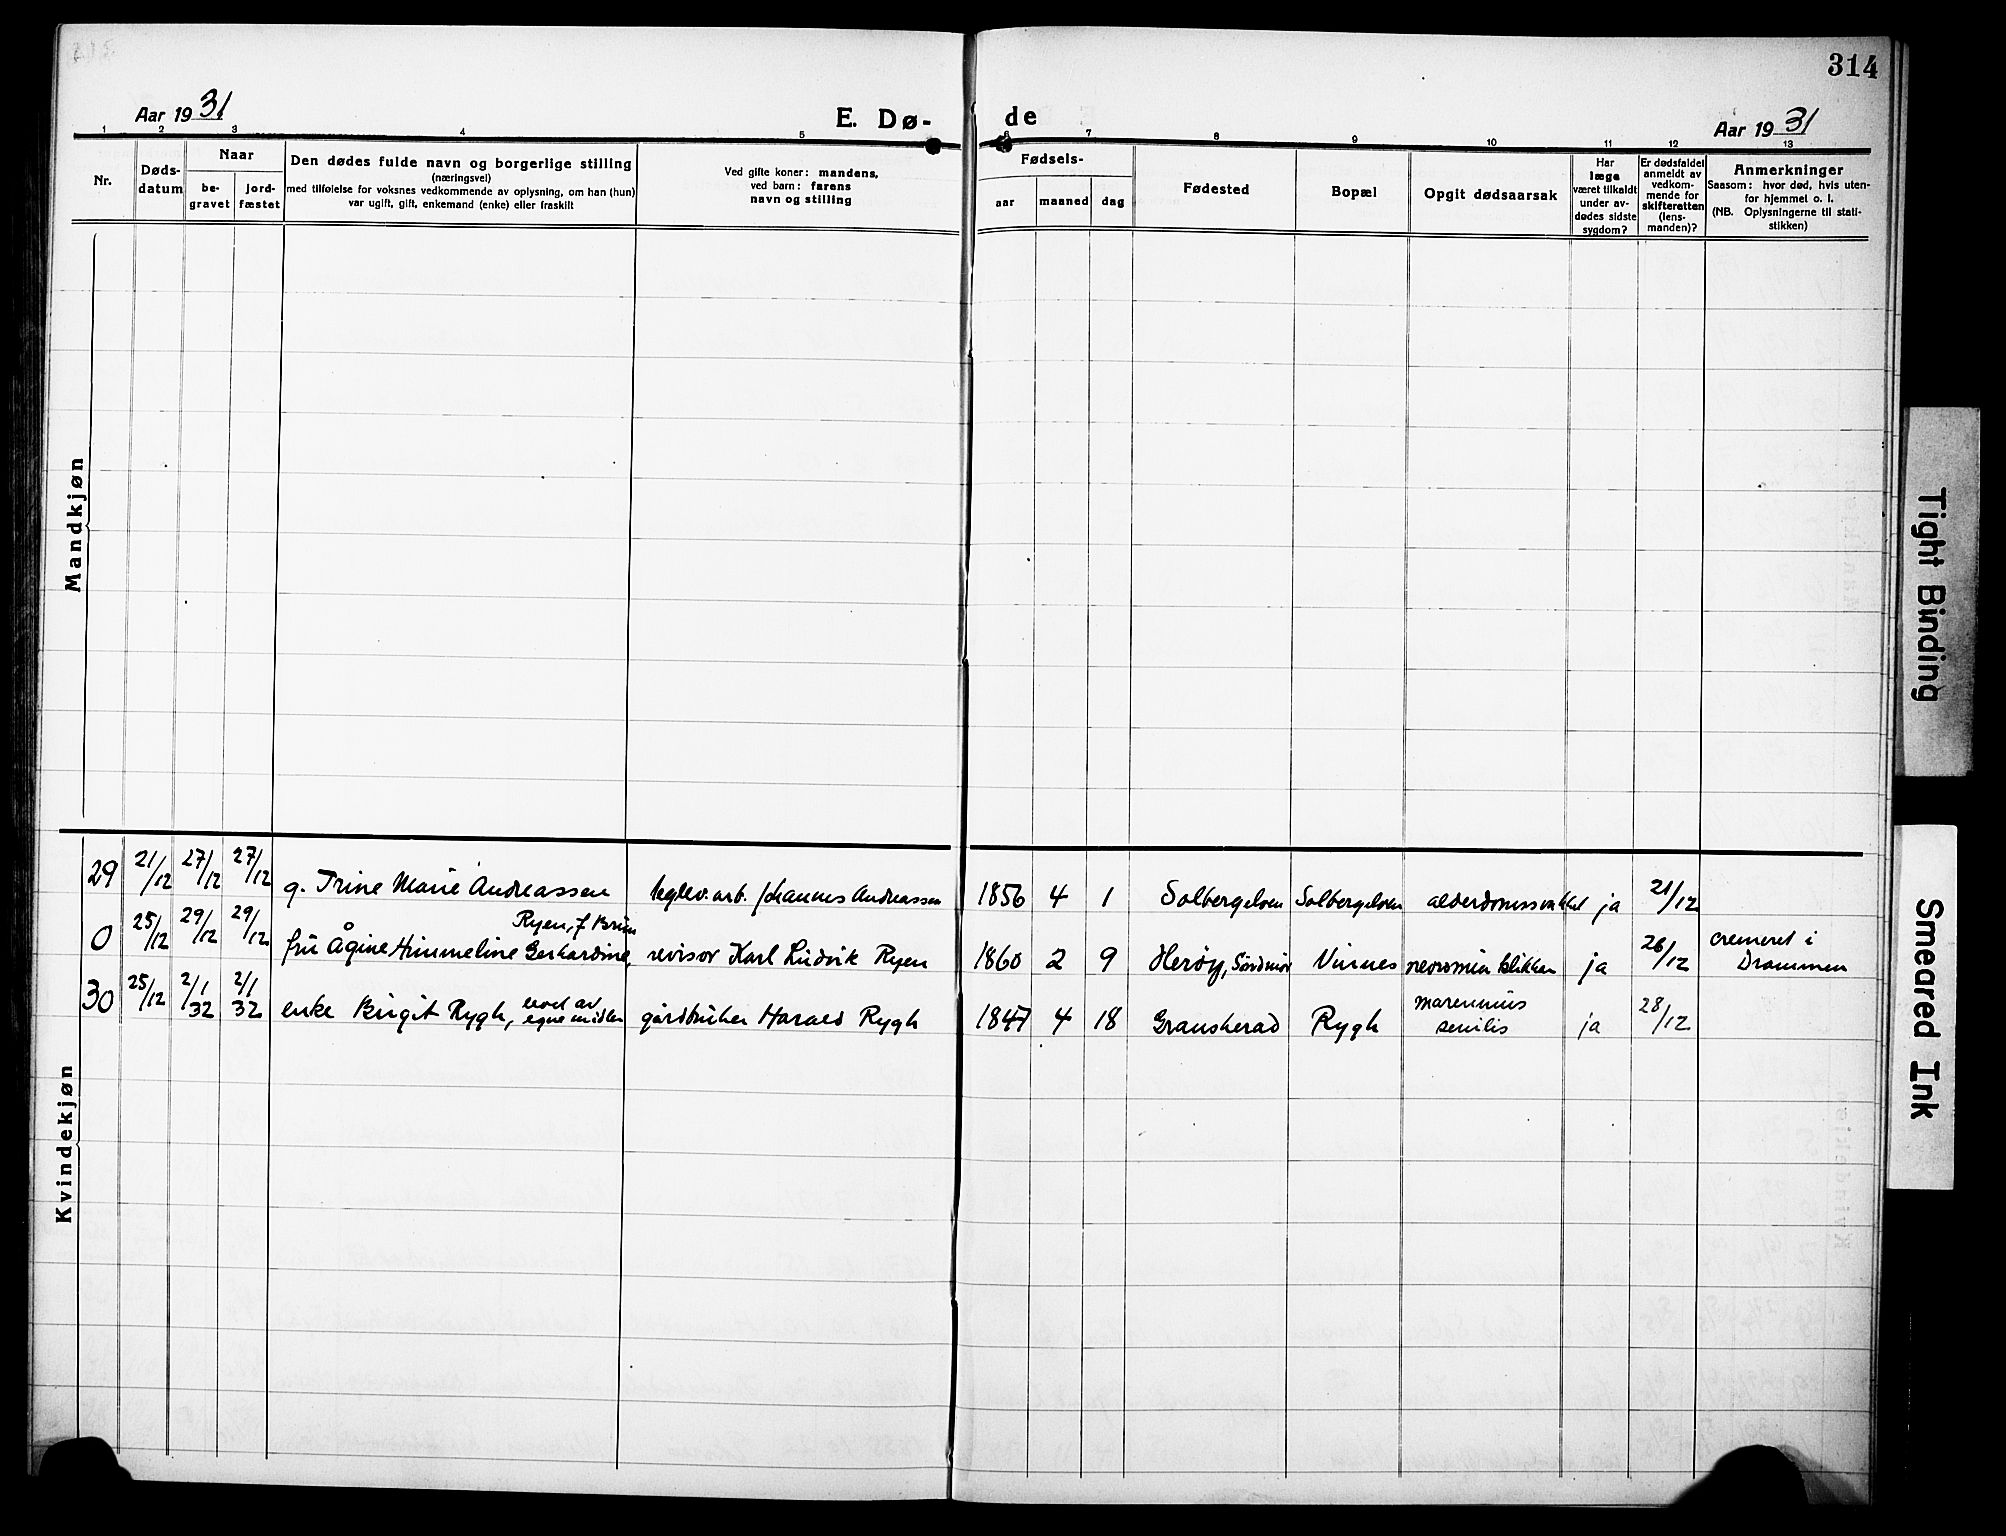 314
Aar 1931
E. Dø-
de
Aar 1931
1 2 3 4 5 6 7 8 9 10 11 12 13
Nr.
Døds-
datum
Naar
be-
gravet
jord-
fæstet
Den dødes fulde navn og borgerlige stilling
(næringsvei)
med tilføielse for voksnes vedkommende av oplysning, om han (hun)
var ugift, gift, enkemand (enke) eller fraskilt
Ved gifte koner: mandens,
ved barn: farens
navn og stilling
Fødsels-
aar maaned dag
Fødested
Bopæl
Opgit dødsaarsak
Har
læge
været tilkaldt
under av-
dødes sidste
sygdom?
Er dødsfaldet
anmeldt av
vedkom-
mende for
skifteretten
(lens-
manden)?
Anmerkninger
Saasom: hvor død, hvis uten-
for hjemmet o. l.
(NB. Oplysningerne til stati-
stikken)
Mandkjøn
Kvindekjøn
29 21/12 27/12 27/12 g. Trine Marie Andreassen teglv.arb. Johannes Andreassen 1856 4 1 Solbergelven Solbergelven alderdomssvakhet ja 21/12
Ryen, f. Bruun
0 25/12 29/12 29/12 fru Ågine Himmeline Gerhardine, revisor Karl Ludvik Ryen 1860 2 9 Herøy, Søndmør Vinnes ja 26/12 cremeret i
Drammen
30 25/12 2/1 32 2/1 32 enke Birgit Rygh, levet av
egne midler gårdbruker Harald Rygh 1847 4 18 Gransherad Rygh marasmus
senilis ja 28/12
Tight Binding
Smeared Ink